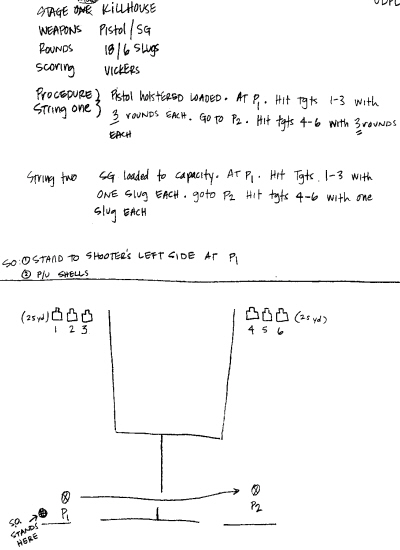 STAGE ONE KILLHOUSE
WEAPONS Pistol/SG
ROUNDS 18/6 Slugs
Scoring VICKERS
Procedure) Pistol holstered loaded. AT P1. Hit Tgts 1-3 with
String one) 3 rounds each. Go to P2. Hit tgts 4-6 with 3 rounds
EACH
String two SG loaded to capacity. AT P1. Hit Tgts. 1-3 with
ONE Slug EACH. goto P2 Hit tgts 4-6 with one
Slug EACH
SO: ① STAND TO SHOOTER'S LEFT SIDE AT P1
② P/U SHELLS
(25yd) (25yd)
1 2 3 4 5 6
P1 P2
S.O. STANDS HERE